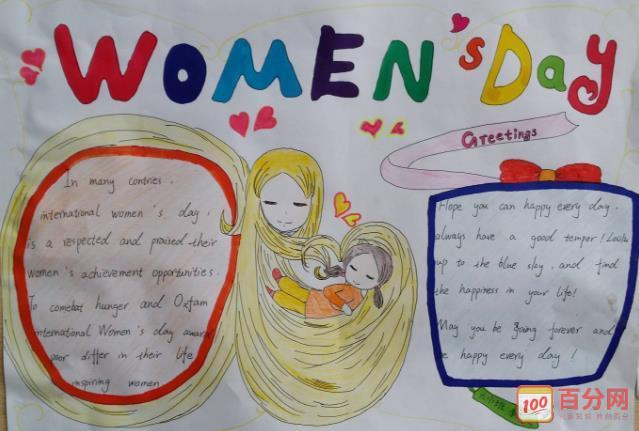 WOMEN'S DAY
Greetings
In many contries,
international women's day,
is a respected and praised their
women's achievement opportunities.
To comebat hunger and Oxfam
international Women's day award
poor differ in their life
inspiring women
Hope you can happy every day,
always have a good temper! Looks
up to the blue sky, and find
the happiness in your life!
May you be going forever and
be happy every day!
100
百分网